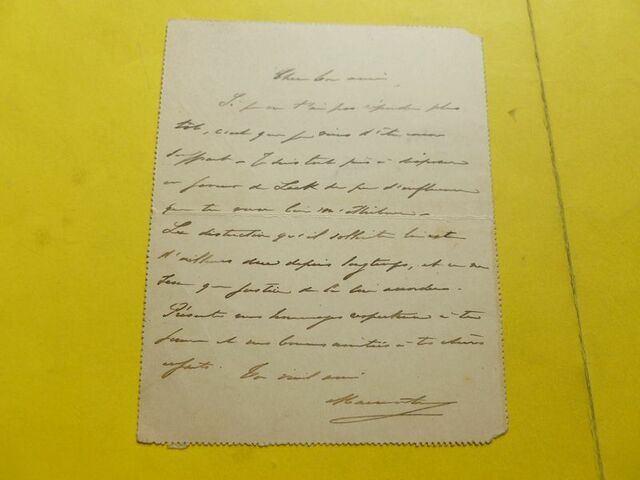 Cher bon ami,
Si je ne t'ai pas répondu plus
tôt, c'est que je viens d'être
souffrant. Je suis tout prêt à disposer
en faveur de Lack du peu d'influence
que tu veux bien m'attribuer.
La distinction qu'il sollicite lui est
d'ailleurs due depuis longtemps, et ce ne
sera que justice de la lui accorder.
Présente mes hommages respectueux à ta
femme et mes bonnes amitiés à tes chers
enfants. Ton vieil ami